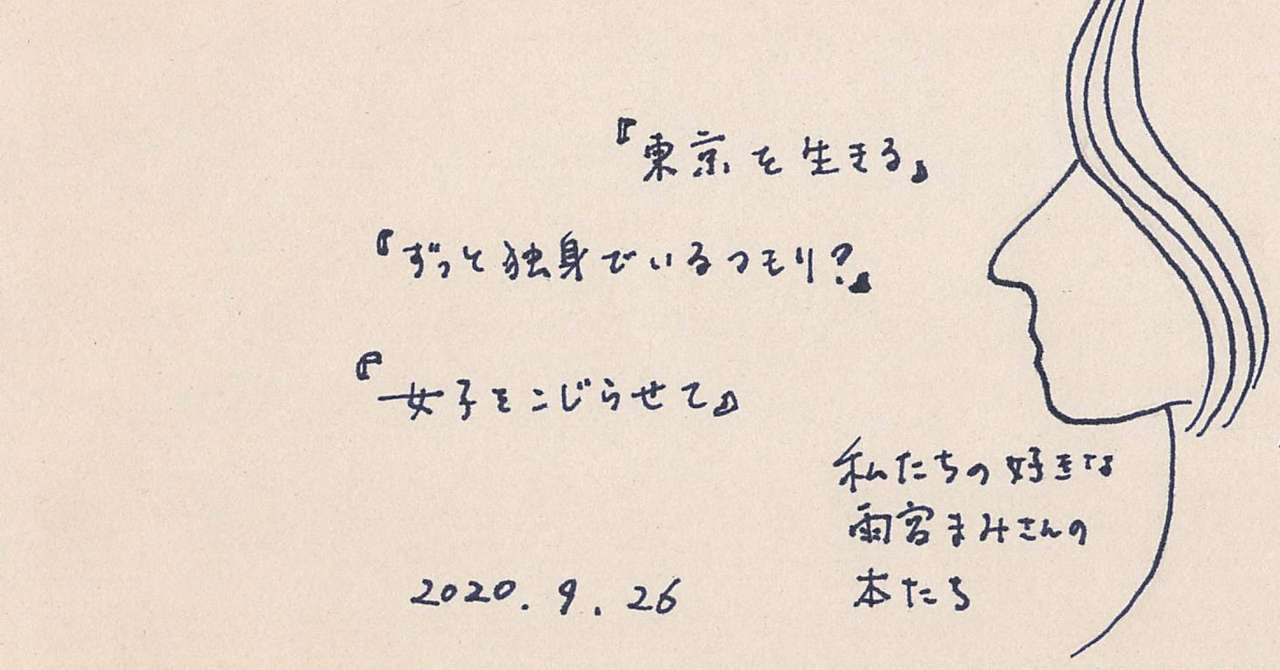 『東京を生きる』
『ずっと独身でいるつもり?』
『女子をこじらせて』
私たちの好きな
雨宮まみさんの
本たち
2020.9.26